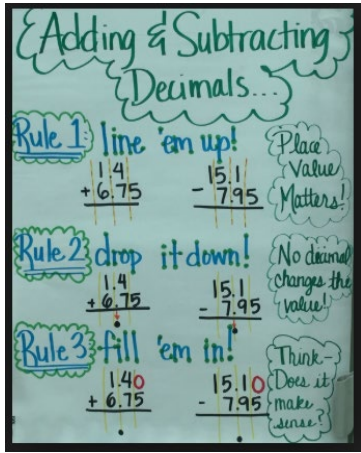 Adding & Subtracting
Decimals...
Rule 1: line 'em up!
1.4
+ 6.75
15.1
- 7.95
Place
Value
Matters!
Rule 2: drop it down!
1.4
+ 6.75
.
15.1
- 7.95
.
No decimal
changes the
value!
Rule 3: fill 'em in!
1.40
+ 6.75
.
15.10
- 7.95
.
Think-
Does it
make
sense?